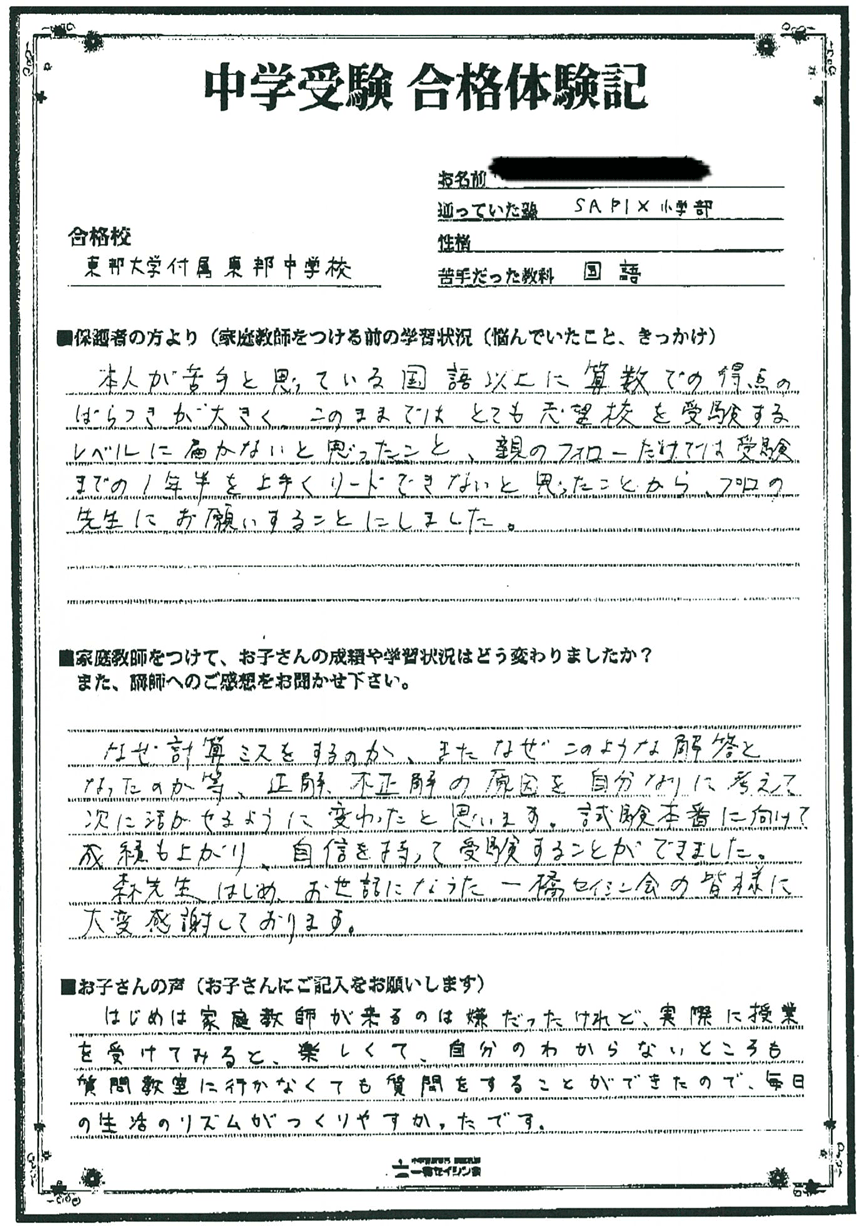 中学受験 合格体験記
お名前
通っていた塾 SAPIX小学部
性格
苦手だった教科 国語
合格校
東邦大学付属東邦中学校
■保護者の方より（家庭教師をつける前の学習状況（悩んでいたこと、きっかけ）
本人が苦手と思っている国語以上に算数での得点の
ばらつきが大きく、このままではとても志望校を受験する
レベルに届かないと思ったこと、親のフォローだけでは受験
までの1年半を上手くリードできないと思ったことから、プロの
先生にお願いすることにしました。
■家庭教師をつけて、お子さんの成績や学習状況はどう変わりましたか？
また、講師へのご感想をお聞かせ下さい。
なぜ計算ミスをするのか、またなぜこのような解答と
なったのか等、正解、不正解の原因を自分なりに考えて
次に活かせるように変わったと思います。試験本番に向けて
成績も上がり、自信を持って受験することができました。
森先生はじめ、お世話になった一橋セイシン会の皆様に
大変感謝しております。
■お子さんの声（お子さんにご記入をお願いします）
はじめは家庭教師が来るのは嫌だったけれど、実際に授業
を受けてみると、楽しくて、自分のわからないところも
質問教室に行かなくても質問をすることができたので、毎日
の生活のリズムがつくりやすかったです。
一橋セイシン会